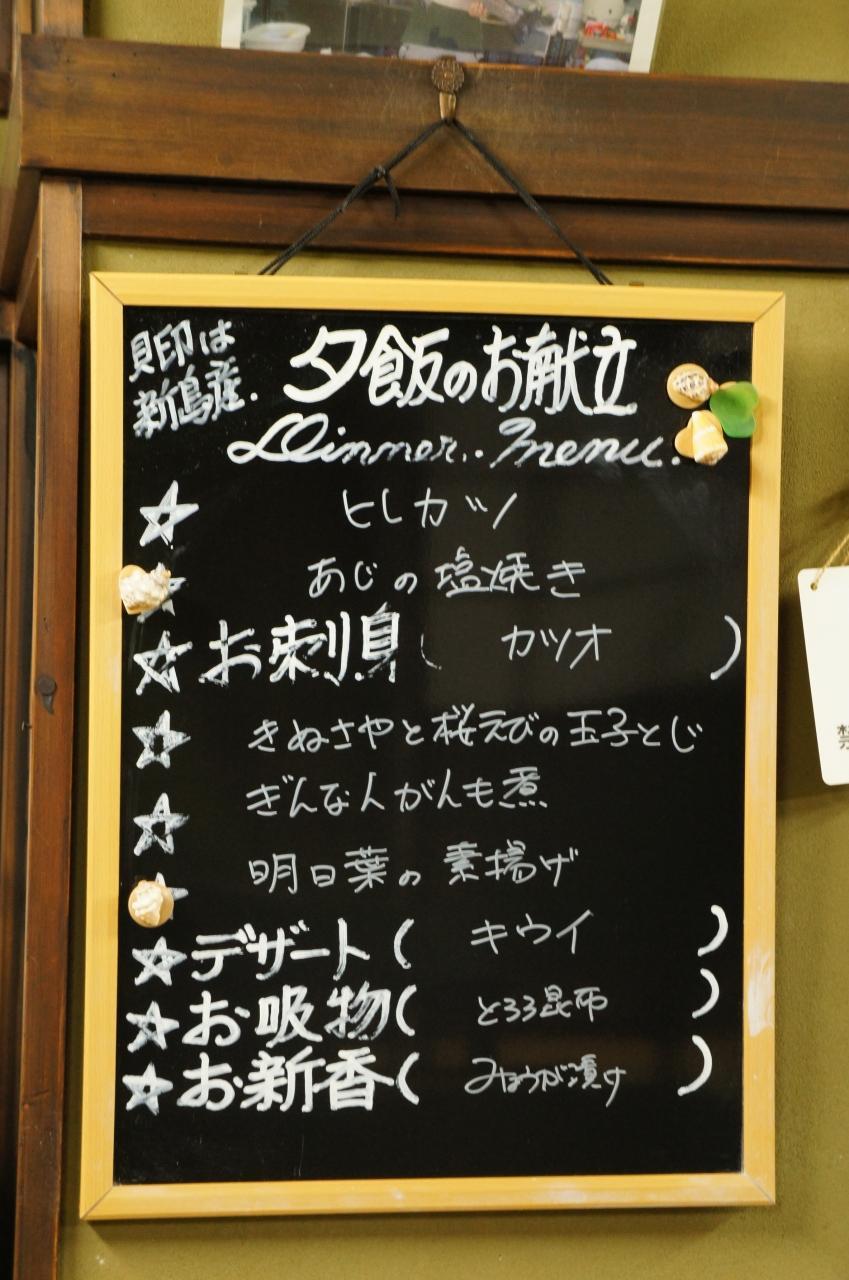 貝印は
新島産.
夕飯のお献立
Dinner..menu.
☆ ヒレカツ
あじの塩焼き
☆お刺身( カツオ )
☆ きぬさやと桜えびの玉子とじ
☆ ぎんな人がんも煮
明日葉の素揚げ
☆デザート( キウイ )
☆お吸物( とろろ昆布 )
☆お新香( みょうが漬け )
禁